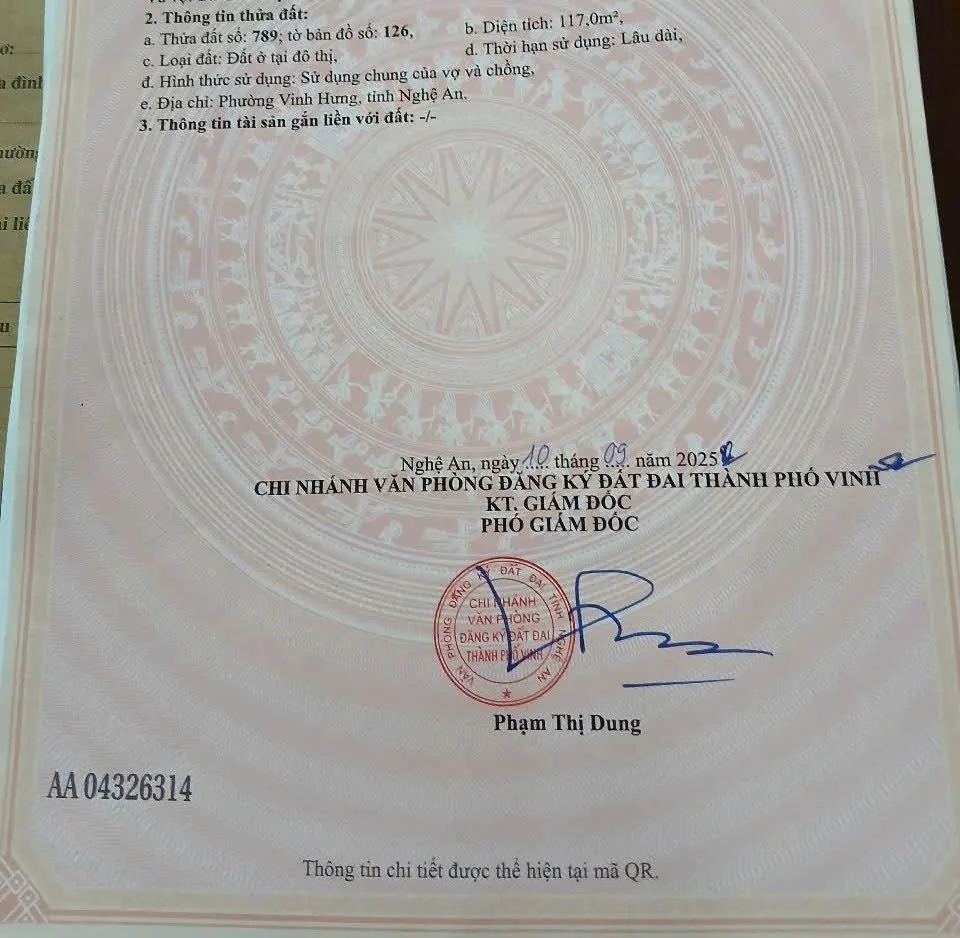 2. Thông tin thửa đất:
a. Thửa đất số: 789; tờ bản đồ số: 126,
b. Diện tích: 117,0m²,
c. Loại đất: Đất ở tại đô thị,
d. Thời hạn sử dụng: Lâu dài,
đ. Hình thức sử dụng: Sử dụng chung của vợ và chồng,
e. Địa chỉ: Phường Vinh Hưng, tỉnh Nghệ An.
3. Thông tin tài sản gắn liền với đất: -/-
Nghệ An, ngày 10 tháng 09 năm 2025
CHI NHÁNH VĂN PHÒNG ĐĂNG KÝ ĐẤT ĐAI THÀNH PHỐ VINH
KT. GIÁM ĐỐC
PHÓ GIÁM ĐỐC
VĂN PHÒNG ĐĂNG KÝ ĐẤT ĐAI TỈNH NGHỆ AN
CHI NHÁNH
VĂN PHÒNG
ĐĂNG KÝ ĐẤT ĐAI
THÀNH PHỐ VINH
Phạm Thị Dung
AA 04326314
Thông tin chi tiết được thể hiện tại mã QR.